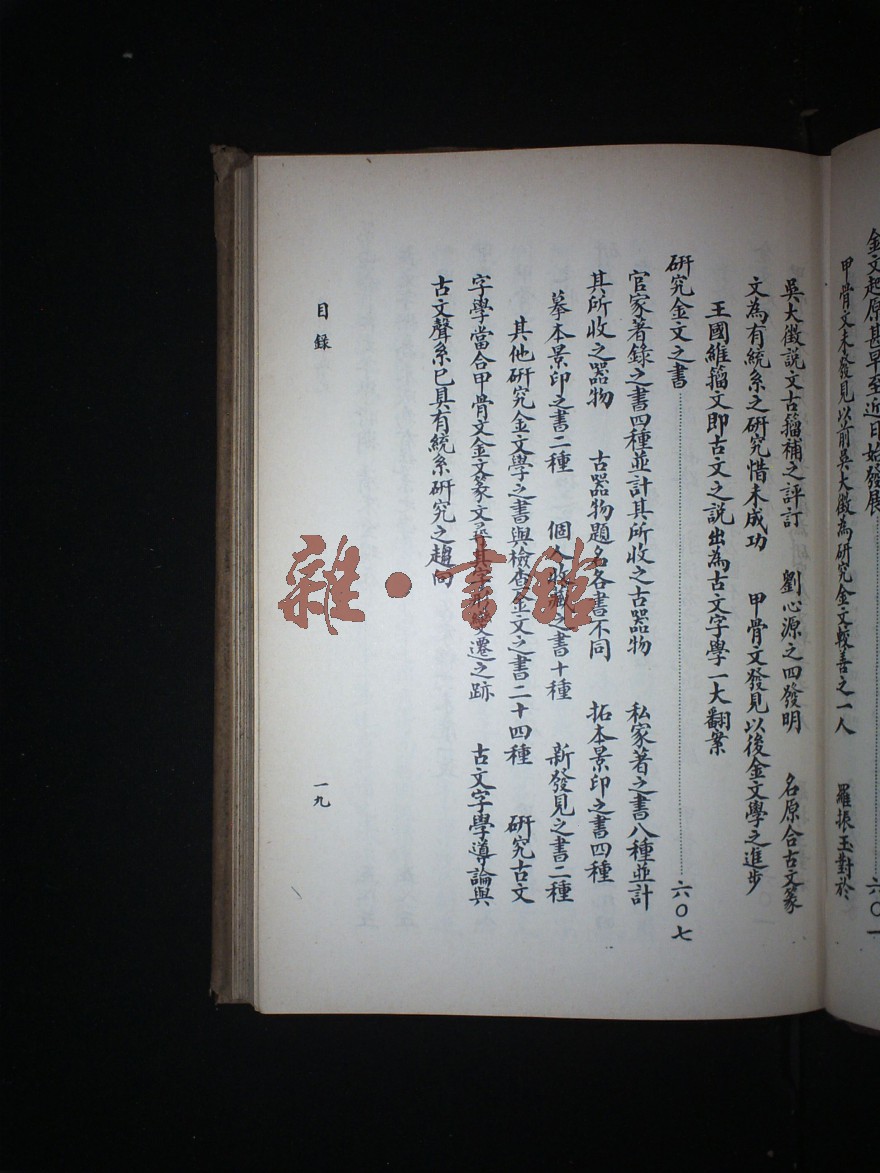 金文起原甚早至近日始發展 六〇一
甲骨文未發見以前吳大徵為研究金文較善之一人 羅振玉對於
吳大徵説文古籀補之評訂 劉心源之四發明 名原合古文篆
文為有統系之研究惜未成功 甲骨文發見以後金文學之進步
王國維籀文即古文之説出為古文字學一大翻案
研究金文之書 六〇七
官家著錄之書四種並計其所收之古器物 私家著之書八種並計
其所收之器物 古器物題名各書不同 拓本景印之書四種
摹本景印之書二種 個人收藏之書十種 新發見之書二種
其他研究金文學之書與檢查金文之書二十四種 研究古文
字學當合甲骨文金文篆文尋其字形變遷之跡 古文字學導論與
古文聲系已具有統系研究之趨向
目錄
一九
雜·書館